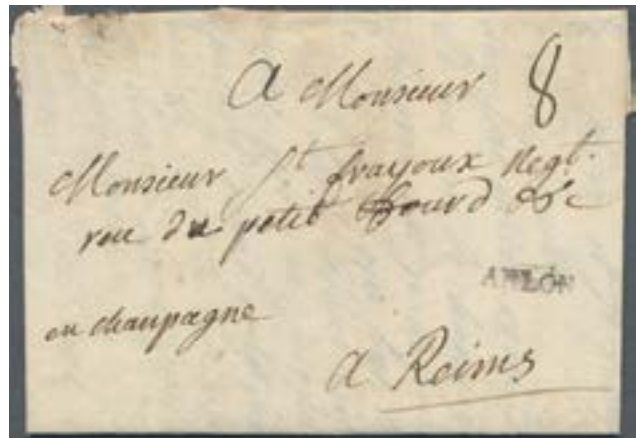 A Monsieur 8
Monsieur St frayoux Negt.
rue du petit four &c
en champagne
a Reims